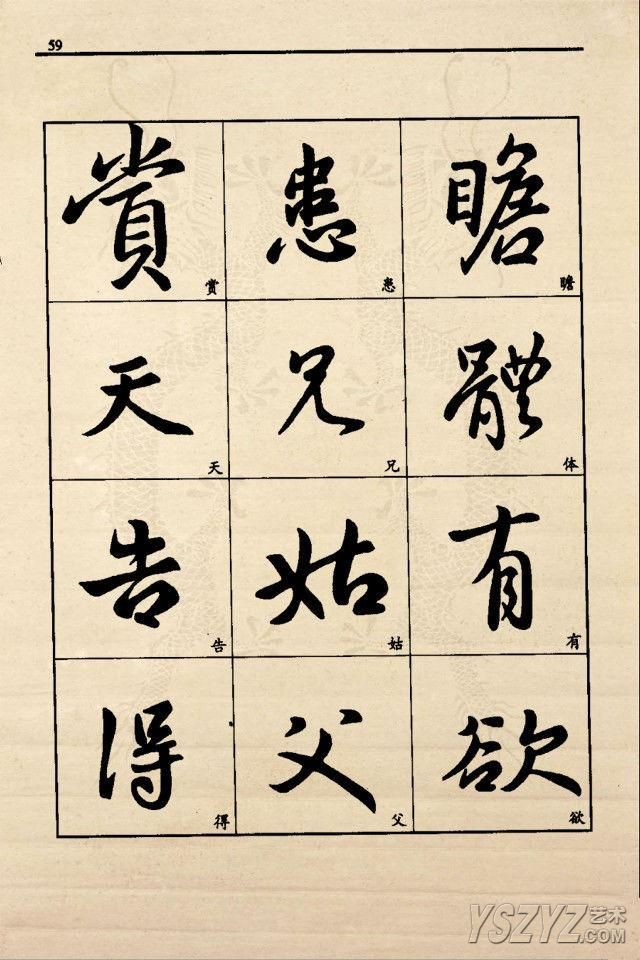 59
瞻 瞻
體 体
有 有
欲 欲
患 患
兄 兄
姑 姑
父 父
賞 赏
天 天
告 告
得 得
YSZYZ艺术.COM